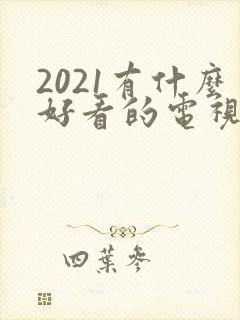 2021有什麼
好看的電視
四葉參